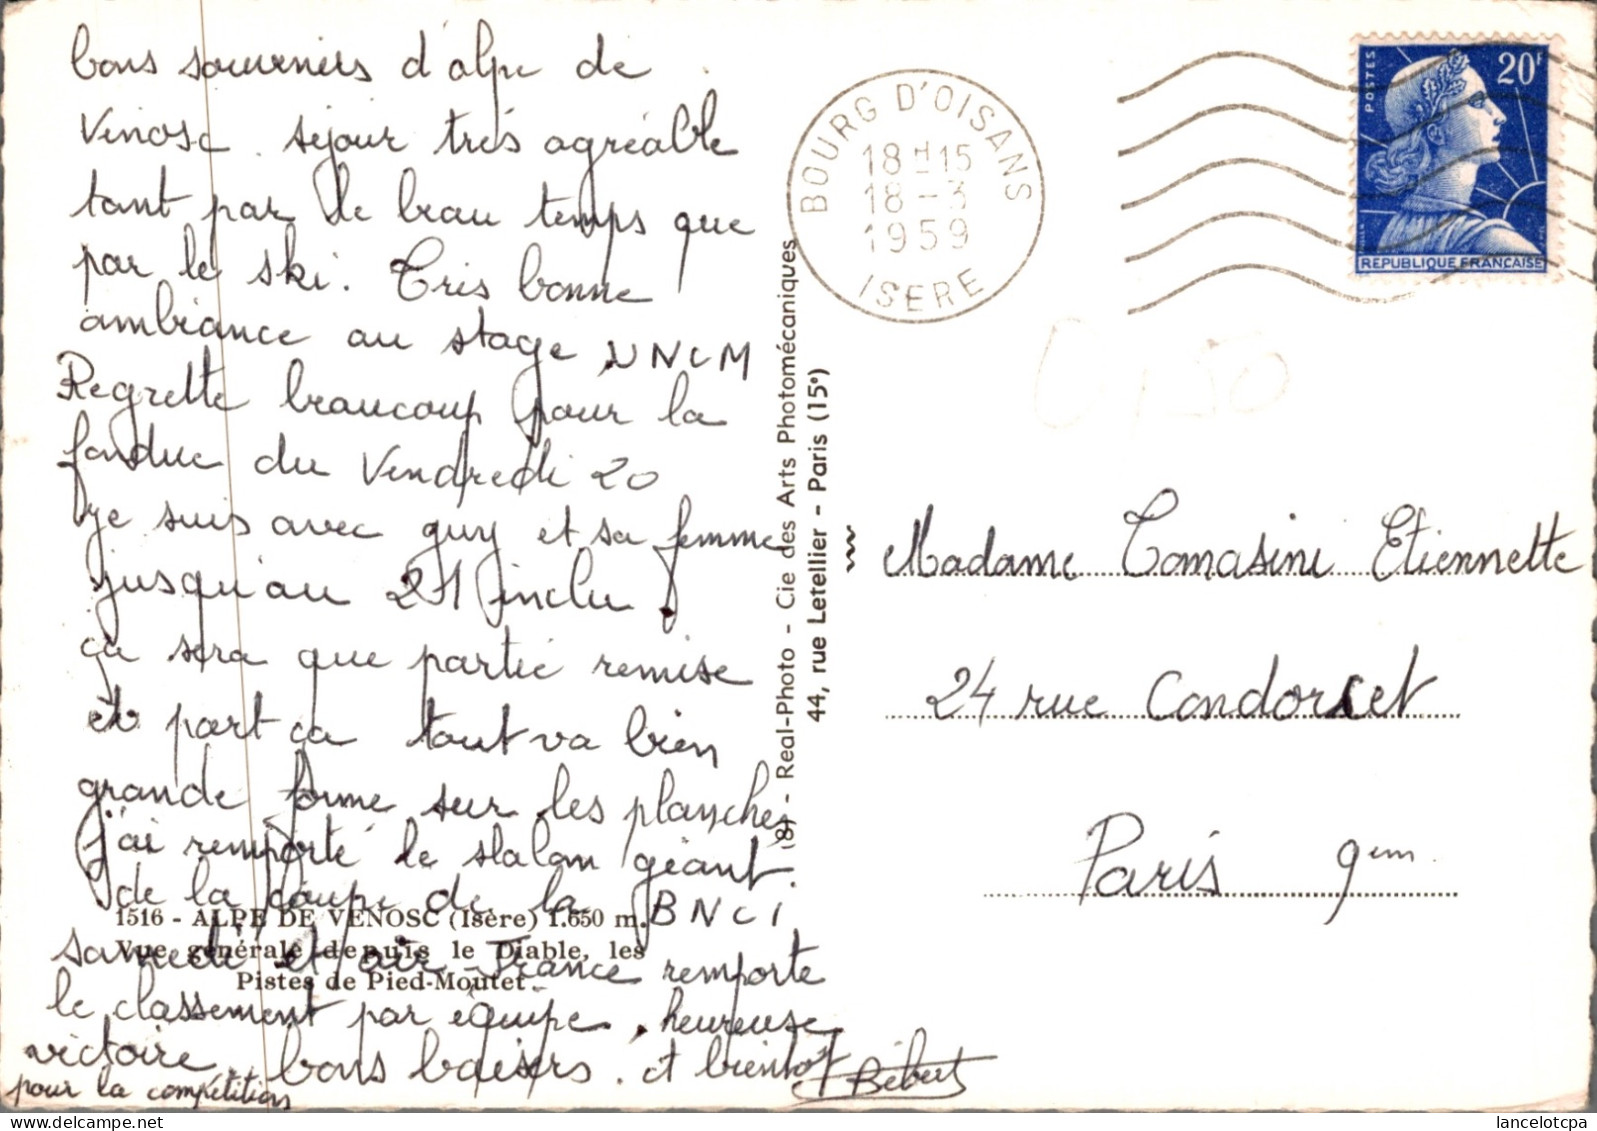 bons souvenirs d'alpe de
Venosc. séjour très agréable
tant par le beau temps que
par le ski. Très bonne
ambiance au stage UNCM
Regrette beaucoup pour la
fondue du Vendredi 20
je suis avec guy et sa femme
jusqu'au 21 inclu.
ça sera que partie remise
et part ça tout va bien
grande forme sur les planches
j'ai remporté le slalom géant.
de la coupe de la BNCI
samedi et air France remporte
le classement par équipe. heureuse
victoire. bons baisers. et bientôt
pour la compétition
Bébert
1516 - ALPE DE VENOSC (Isère) 1.650 m.
Vue générale depuis le Diable, les
Pistes de Pied-Moutet -
(8) - Real-Photo - Cie des Arts Photomécaniques
44, rue Letellier - Paris (15e)
BOURG D'OISANS
18 H 15
18 - 3
1959
ISERE
POSTES
20F
REPUBLIQUE FRANCAISE
Madame Tomasini Etiennette
24 rue Condorcet
Paris 9em.
lancelotcpa